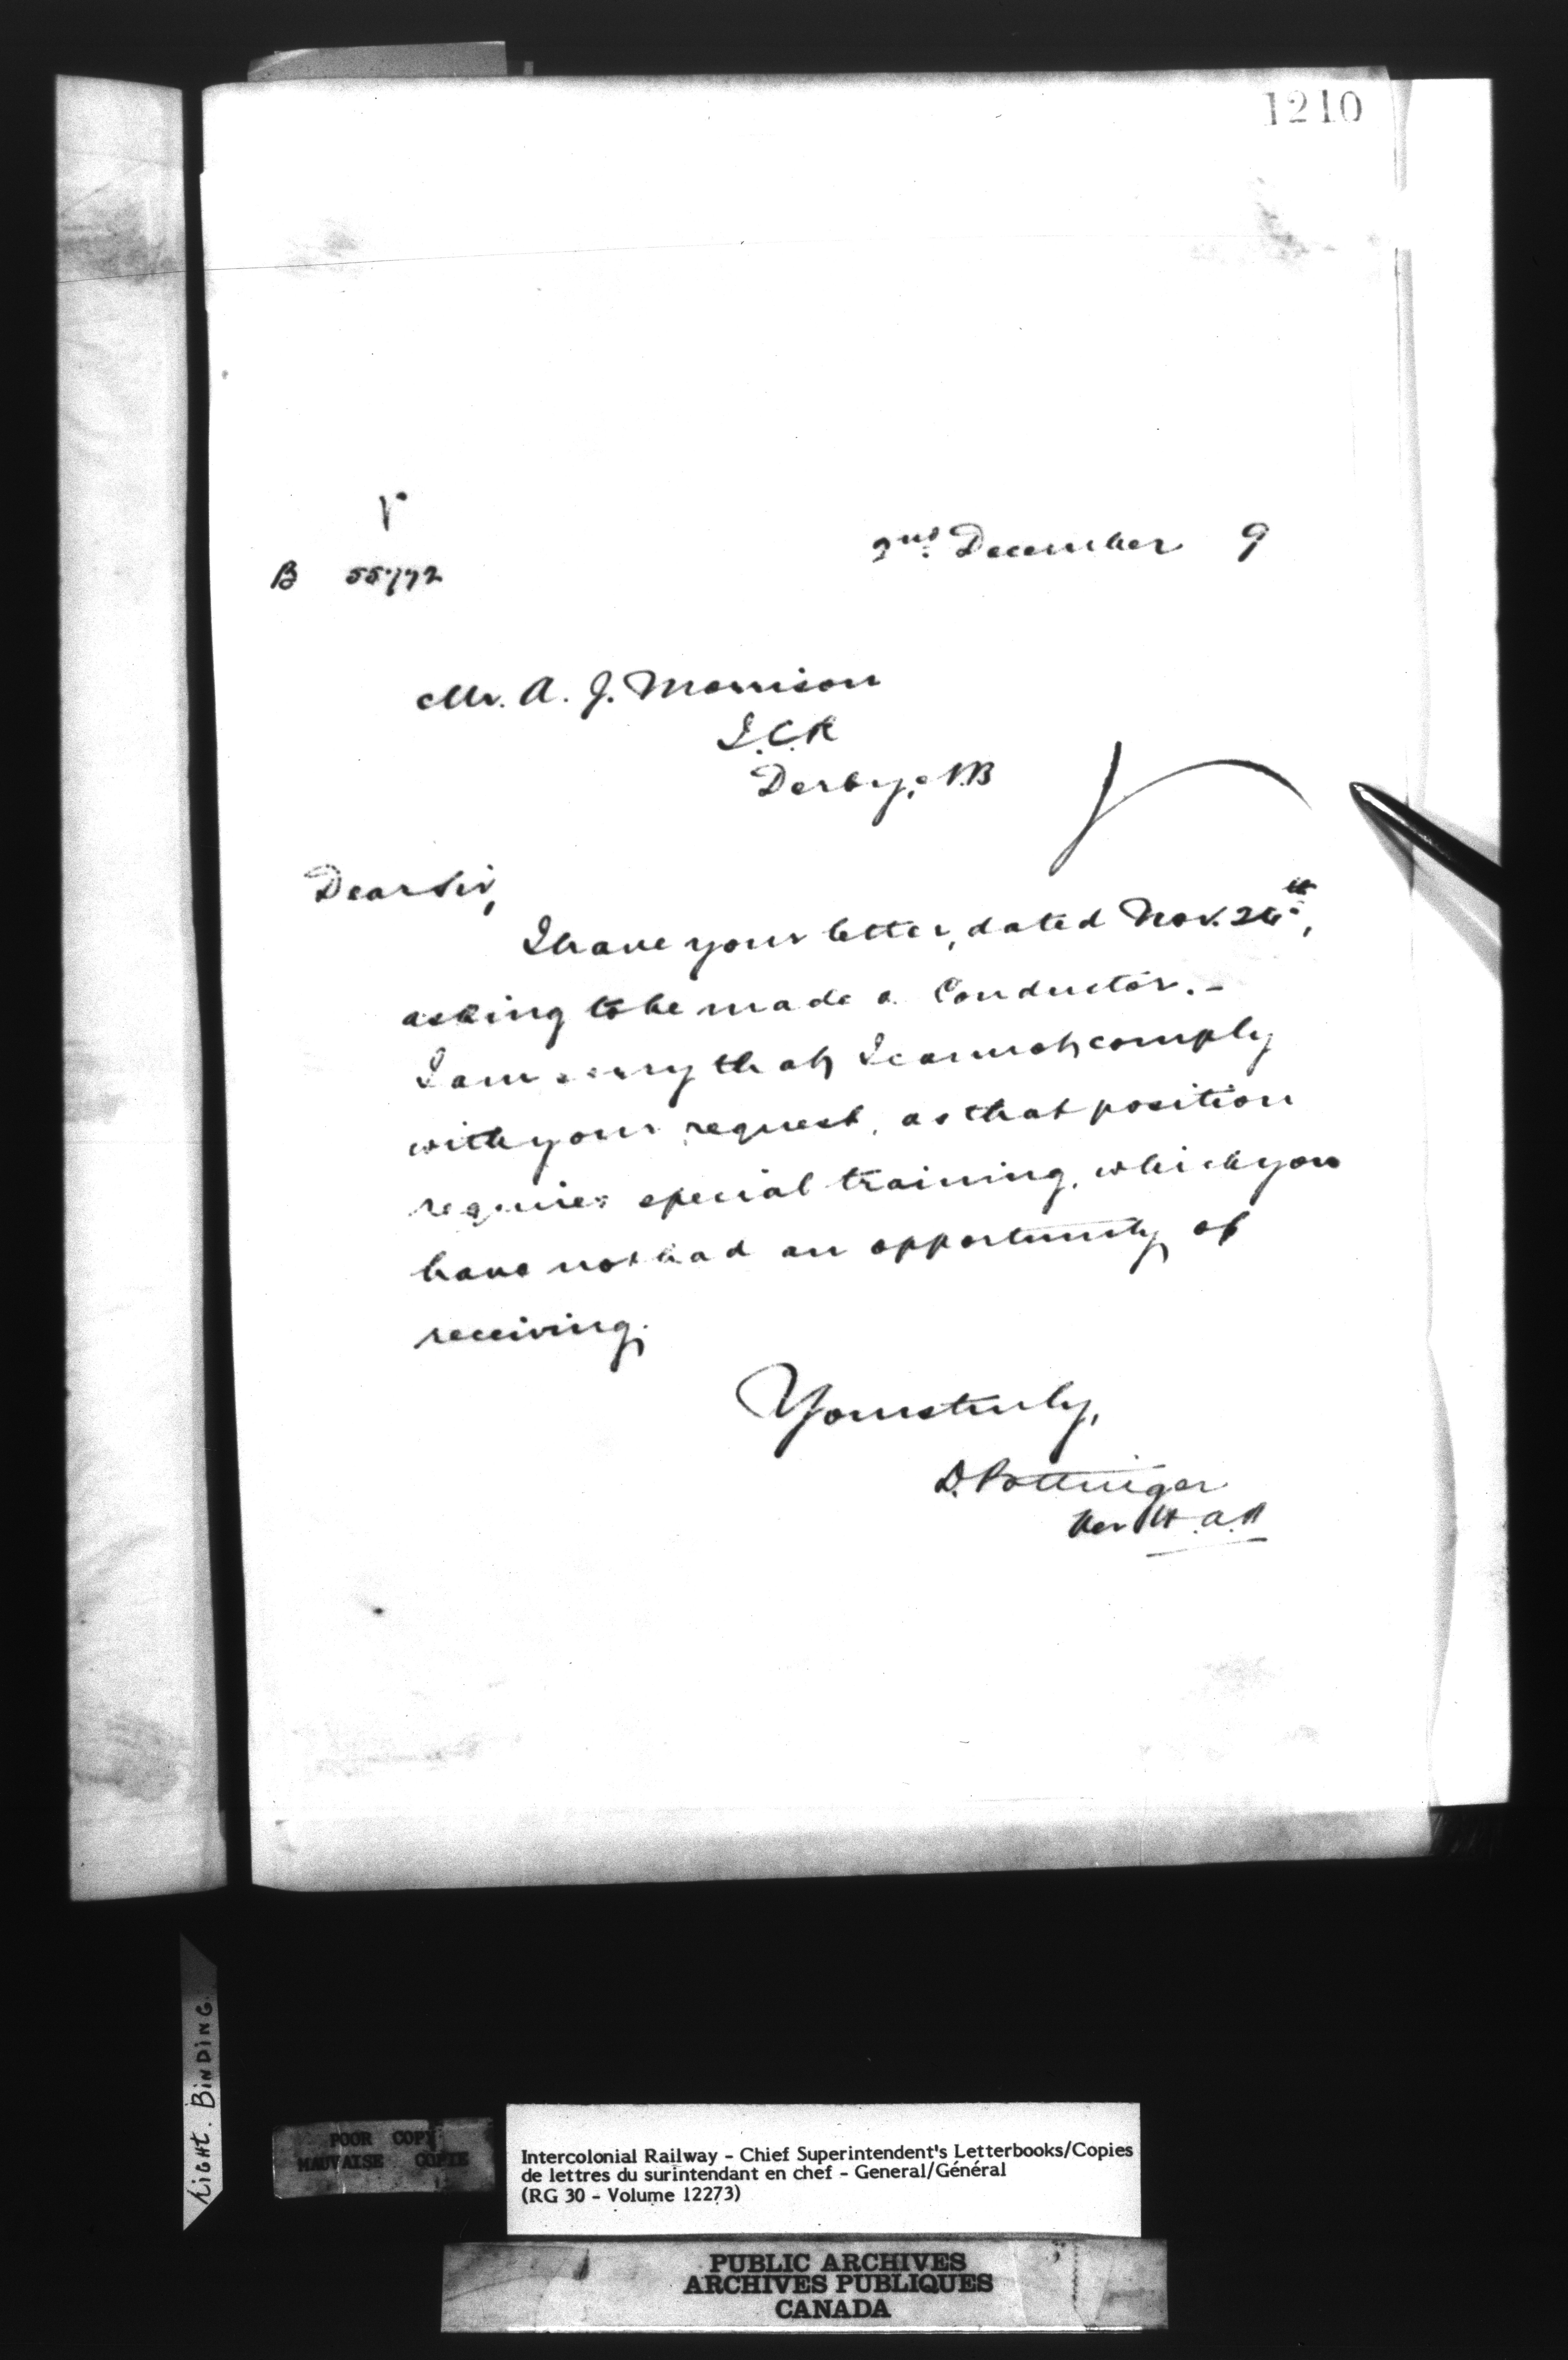 1210
B 55772
2nd December 9
Mr. A. J. Morrison
I.C.R
Derby, N.B
Dear Sir,
I have your letter, dated Nov. 26th,
asking to be made a Conductor. -
I am sorry that I cannot comply
with your request, as that position
requires special training, which you
have not had an opportunity of
receiving.
Yours truly,
D. Pottinger
Per H.A.R
Tight. Binding.
POOR COPY
MAUVAISE COPIE
Intercolonial Railway - Chief Superintendent's Letterbooks/Copies
de lettres du surintendant en chef - General/Général
(RG 30 - Volume 12273)
PUBLIC ARCHIVES
ARCHIVES PUBLIQUES
CANADA